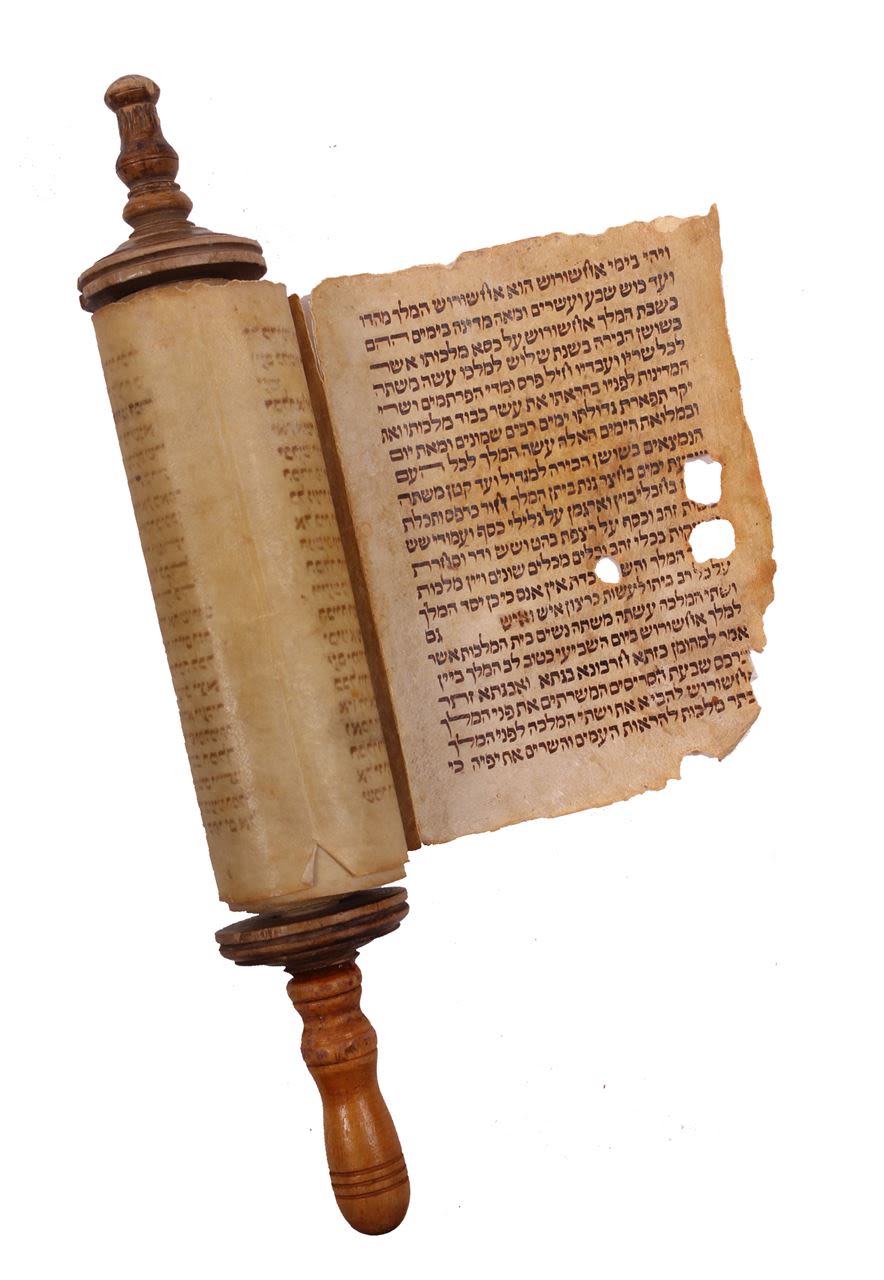 ויהי בימי אחשורוש הוא אחשורוש המלך מהדו
ועד כוש שבע ועשרים ומאה מדינה בימים ההם
כשבת המלך אחשורוש על כסא מלכותו אשר
בשושן הבירה בשנת שלוש למלכו עשה משתה
לכל שריו ועבדיו חיל פרס ומדי הפרתמים ושרי
המדינות לפניו בהראתו את עשר כבוד מלכותו ואת
יקר תפארת גדולתו ימים רבים שמונים ומאת יום
ובמלואת הימים האלה עשה המלך לכל העם
הנמצאים בשושן הבירה למגדול ועד קטן משתה
ימים בחצר גנת ביתן המלך חור כרפס ותכלת
בחבלי בוץ וארגמן על גלילי כסף ועמודי שש
זהב וכסף על רצפת בהט ושש ודר וסחרת
בכלי זהב וכלים מכלים שונים ויין מלכות
המלך אין אנס כי כן יסד המלך
על כל רב ביתו לעשות כרצון איש ואיש גם
ושתי המלכה עשתה משתה נשים בית המלכות אשר
למלך אחשורוש ביום השביעי כטוב לב המלך ביין
אמר למהומן בזתא חרבונא בגתא ואבגתא זתר
שבעת הסריסים המשרתים את פני המלך
אחשורוש להביא את ושתי המלכה לפני המלך
מלכות להראות העמים והשרים את יפיה כי